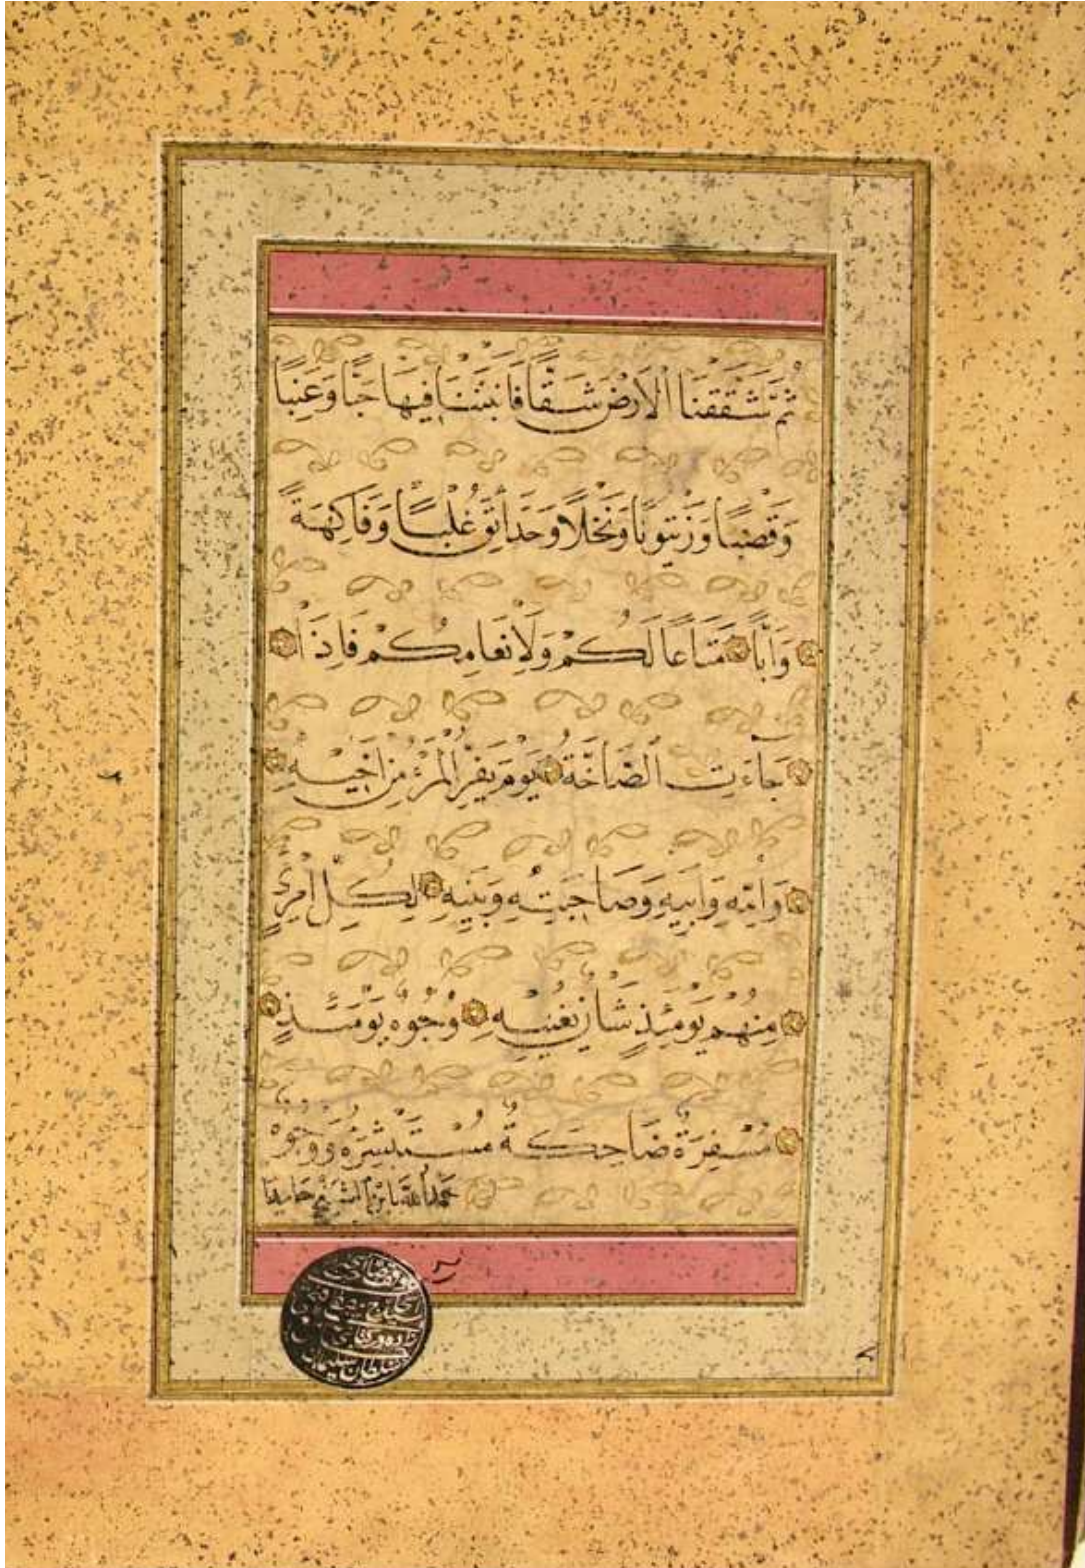 ثُمَّ شَقَقْنَا الْاَرْضَ شَقًّا فَاَنْبَتْنَا فِيهَا حَبًّا وَعِنَبًا
وَقَضْبًا وَزَيْتُونًا وَنَخْلًا وَحَدَائِقَ غُلْبًا وَفَاكِهَةً
وَاَبًّا مَتَاعًا لَكُمْ وَلِاَنْعَامِكُمْ فَاِذَا
جَآءَتِ الصَّاخَّةُ يَوْمَ يَفِرُّ الْمَرْءُ مِنْ اَخِيهِ
وَاُمِّهِ وَاَبِيهِ وَصَاحِبَتِهِ وَبَنِيهِ لِكُلِّ امْرِئٍ
مِنْهُمْ يَوْمَئِذٍ شَاْنٌ يُغْنِيهِ وُجُوهٌ يَوْمَئِذٍ
مُسْفِرَةٌ ضَاحِكَةٌ مُسْتَبْشِرَةٌ وَوُجُوهٌ